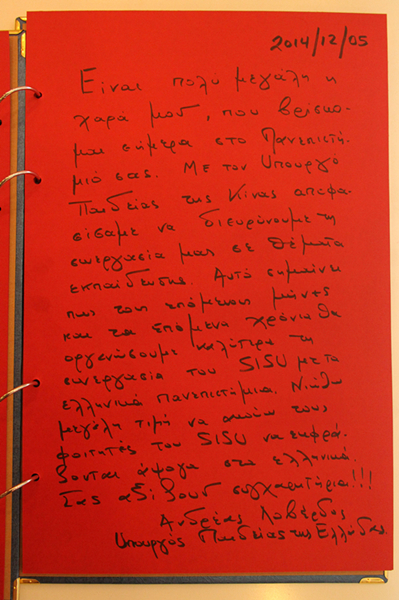 2014/12/05
Είναι πολύ μεγάλη η
χαρά μου, που βρίσκο-
μαι σήμερα στο Πανεπιστή-
μιό σας. Με τον Υπουργό
Παιδείας της Κίνας αποφα-
σίσαμε να διευρύνουμε τη
συνεργασία μας σε θέματα
εκπαίδευσης. Αυτό σημαίνει
πως τους επόμενους μήνες
και τα επόμενα χρόνια θα
οργανώσουμε καλύτερα τη
συνεργασία του SISU με τα
ελληνικά Πανεπιστήμια. Νιώθω
μεγάλη τιμή να ακούω τους
φοιτητές του SISU να εκφρά-
ζονται άψογα στα ελληνικά.
Σας αξίζουν συγχαρητήρια!!!
Ανδρέας Λοβέρδος
Υπουργός Παιδείας της Ελλάδας.